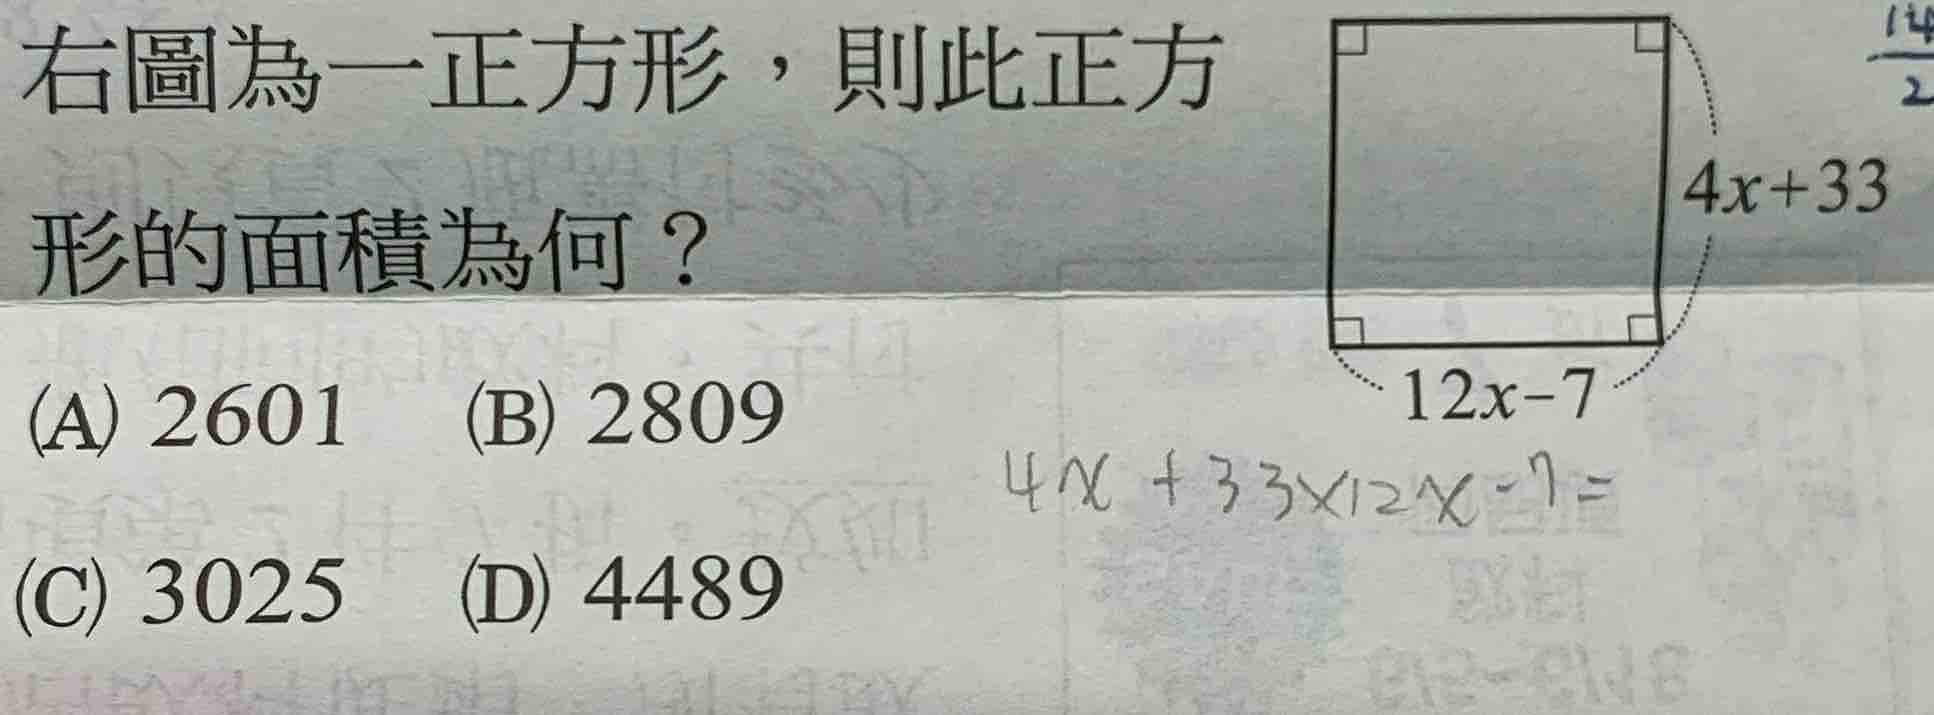 右圖為一正方形，則此正方
形的面積為何？
4x+33
12x-7
(A) 2601 (B) 2809
(C) 3025 (D) 4489
4x+33×12x-7=
14
2